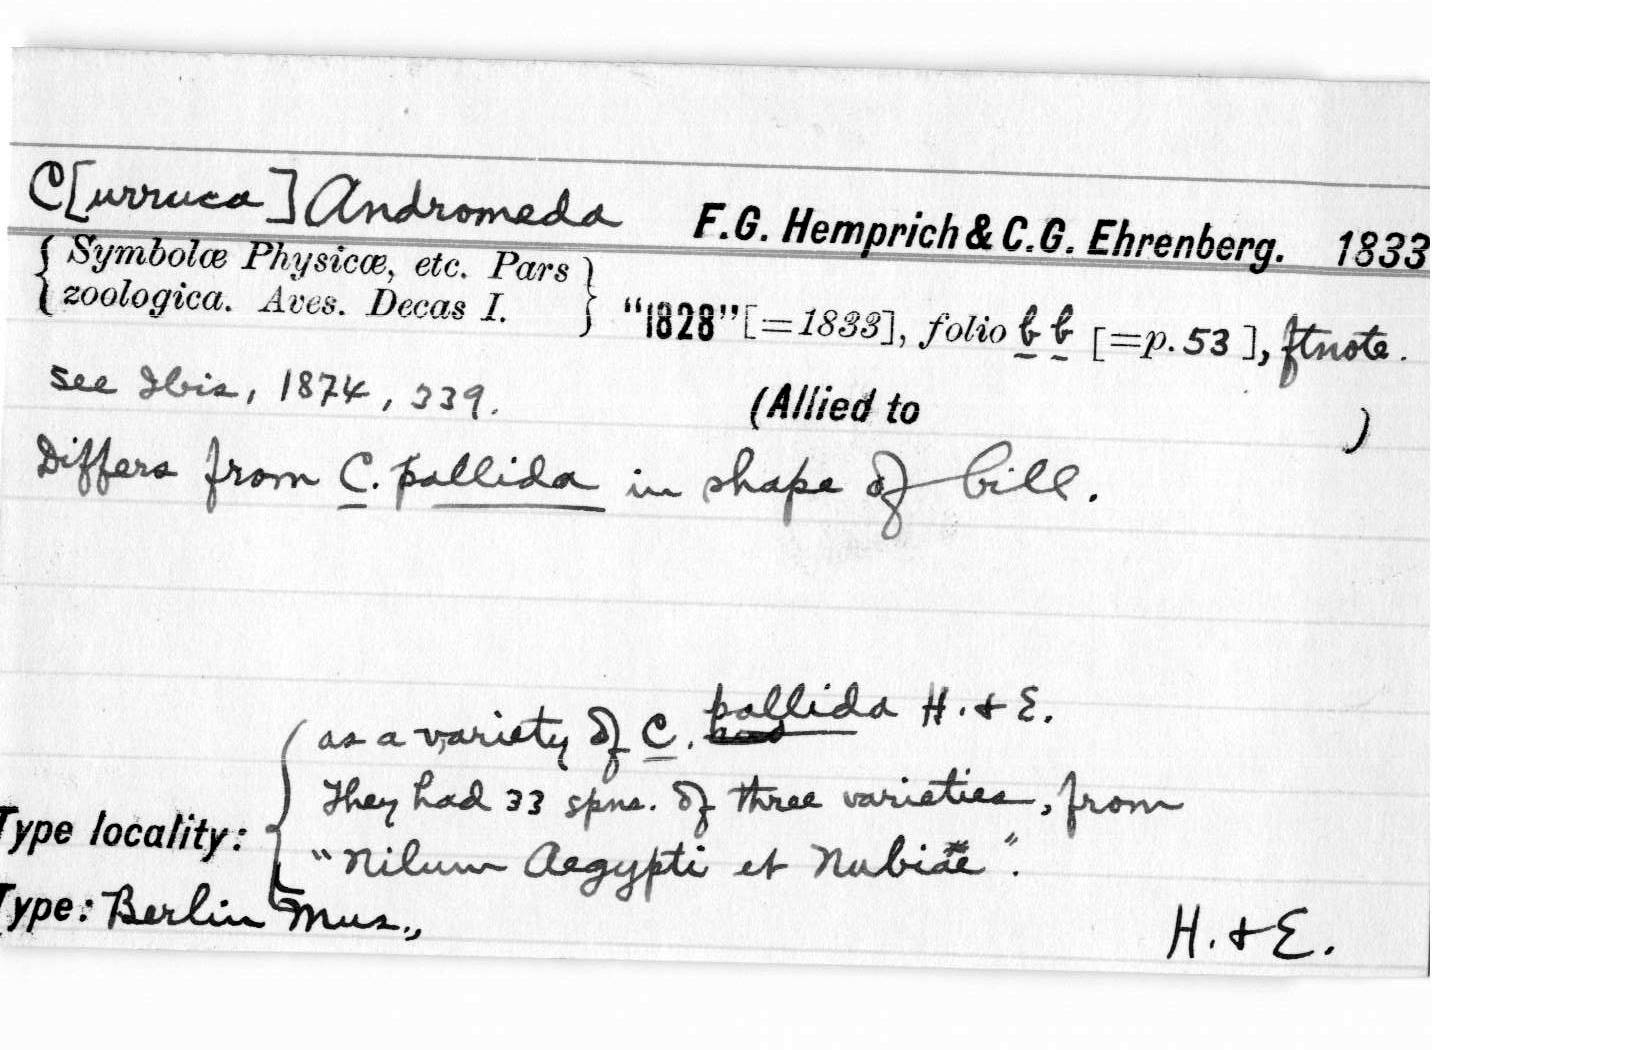 C[urruca] Andromeda F.G. Hemprich & C.G. Ehrenberg. 1833
{ Symbolæ Physicæ, etc. Pars
zoologica. Aves. Decas I. } "1828" [=1833], folio b b [=p. 53 ], ftnote.
see Ibis, 1874, 339. (Allied to )
Differs from C. pallida in shape of bill.
as a variety of C. pallida H. & E.
They had 33 spns. of three varieties, from
Type locality: "Nilum Aegypti et Nubiae".
Type: Berlin Mus., H. & E.